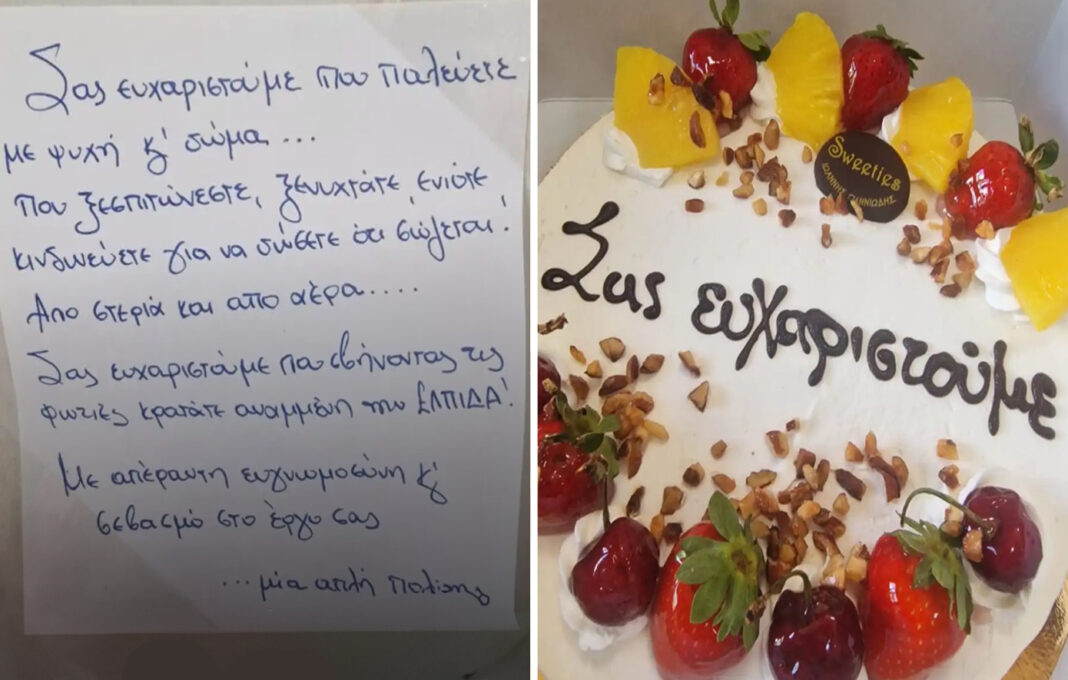 Σας ευχαριστούμε που παλεύετε
με ψυχή κ' σώμα...
που ξεσπιτώνεστε, ξενυχτάτε, ενίοτε
κινδυνεύετε για να σώσετε ότι σώζεται!
Απο στεριά και απο αέρα....
Σας ευχαριστούμε που σβήνοντας τις
φωτιές κρατάτε αναμμένη την ΕΛΠΙΔΑ!
Με απέραντη ευγνωμοσύνη κ'
σεβασμό στο έργο σας
...μία απλή πολίτης
Sweeties
ΙΩΑΝΝΗΣ
Σας ευχαριστούμε